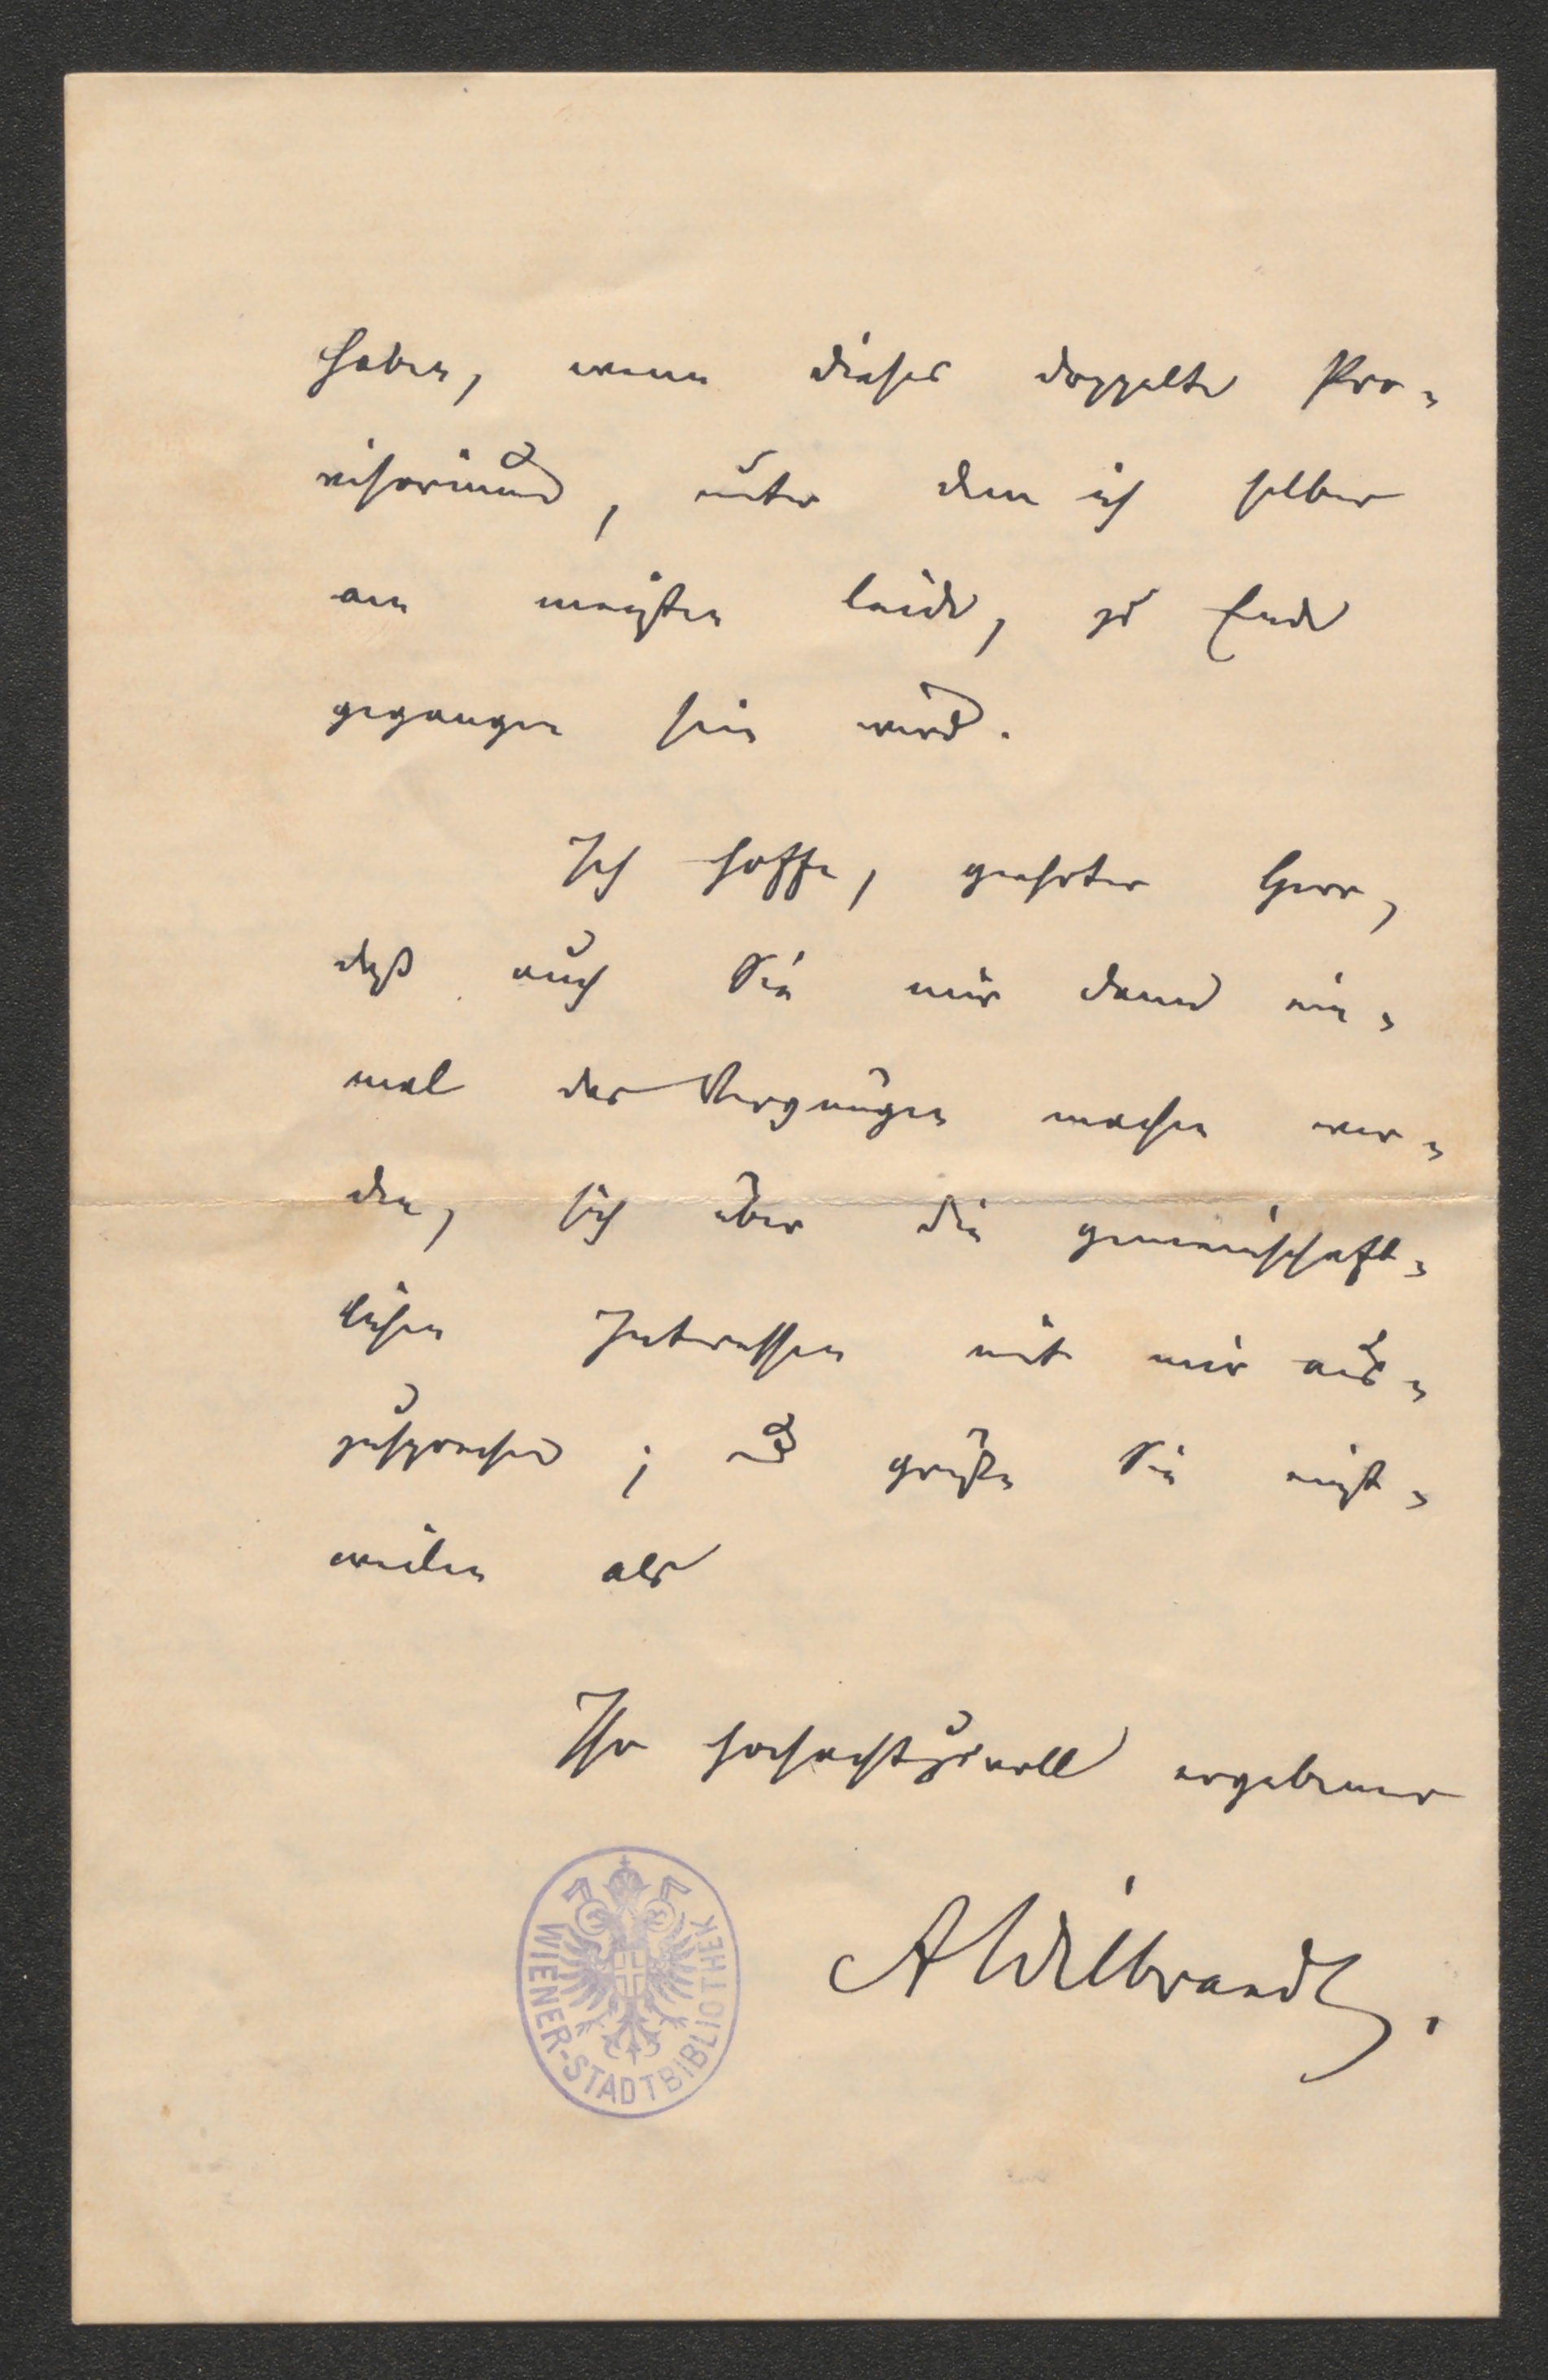 haben, wenn dieses doppelte Pro-
visorium, unter dem ich selber
am meisten leide, zu Ende
gegangen sein wird.
Ich hoffe, geehrter Herr,
daß auch Sie mir dann ein-
mal das Vergnügen machen wer-
den, sich über die gemeinschaft-
lichen Interessen mit mir aus-
zusprechen; und grüße Sie einst-
weilen als
Ihr hochachtungsvoll ergebener
AWilbrandt.
WIENER-STADTBIBLIOTHEK